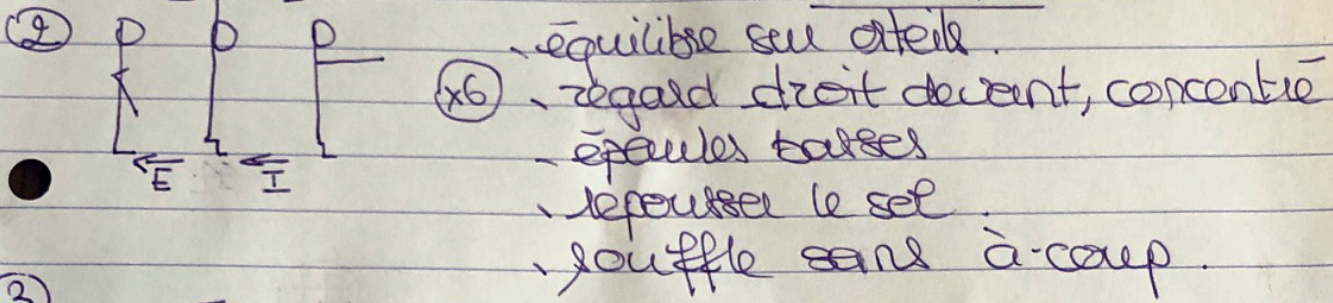 ② - équilibre sur orteils.
x6 - regard droit devant, concentré
- épaules basses
E I - repousser le sol.
- souffle sans à-coup.
3